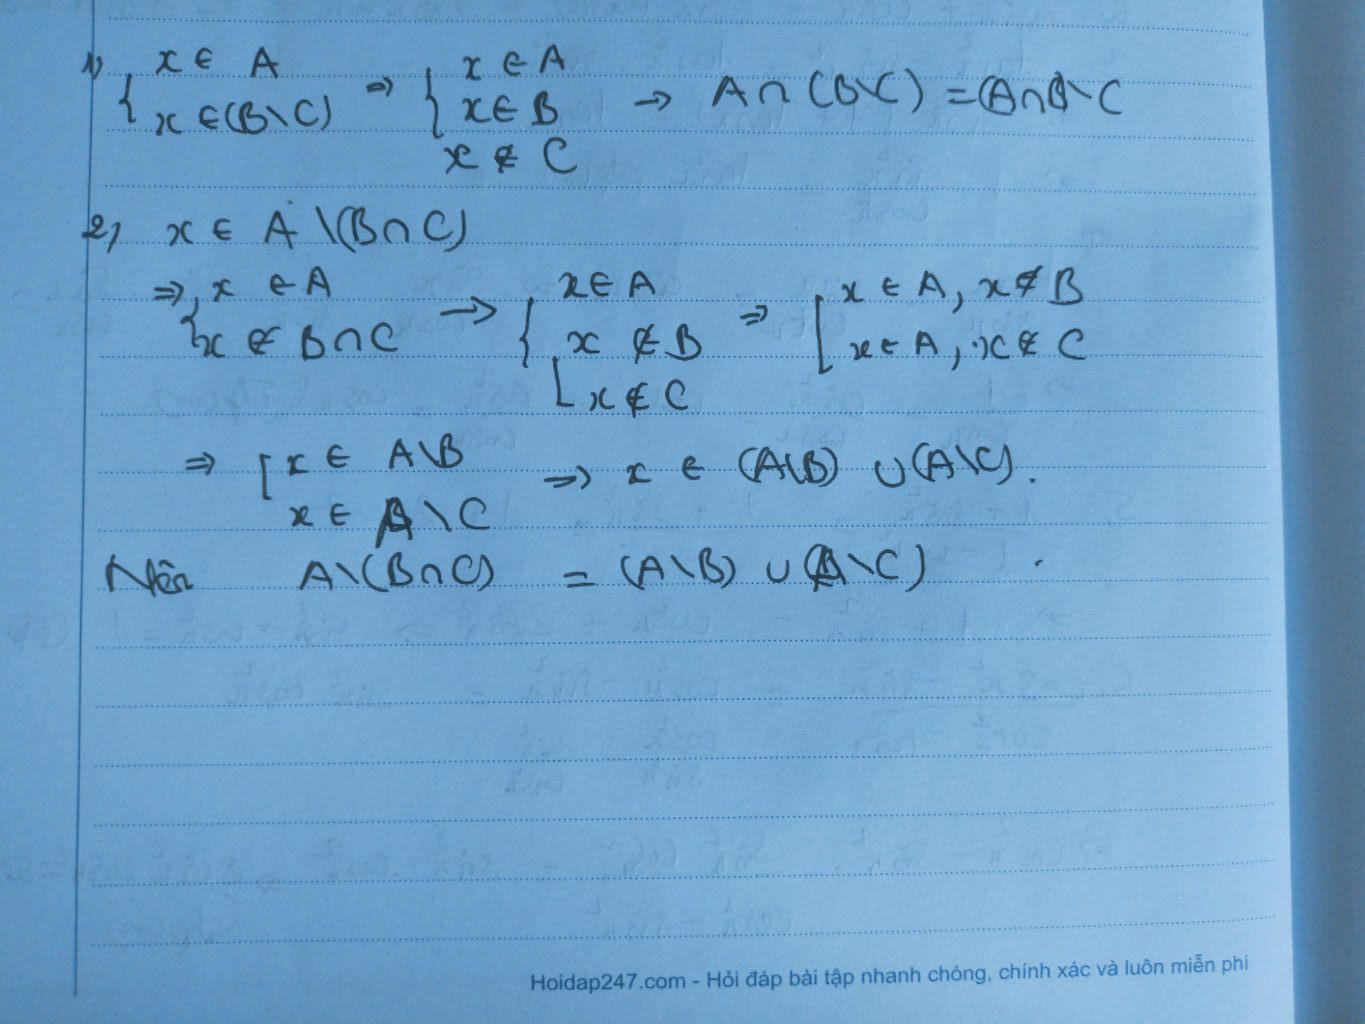 1) { x ∈ A
x ∈ (B\C) ⇒ { x ∈ A
x ∈ B
x ∉ C → A∩(B\C) = (A∩B)\C
2) x ∈ A \(B∩C)
⇒ { x ∈ A
x ∉ B∩C → { x ∈ A
[ x ∉ B
x ∉ C ⇒ [ x ∈ A, x ∉ B
x ∈ A, x ∉ C
⇒ [ x ∈ A\B
x ∈ A\C ⇒ x ∈ (A\B) ∪ (A\C).
Nên A\(B∩C) = (A\B) ∪ (A\C)
Hoidap247.com - Hỏi đáp bài tập nhanh chóng, chính xác và luôn miễn phí